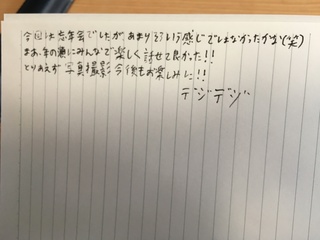 今回は忘年会でしたが、あまりそういう感じではなかったかな(笑)
まあ、年の瀬にみんなで楽しく話せて良かった!!
とりあえず写真撮影今後もお楽しみに!!
デジデジ